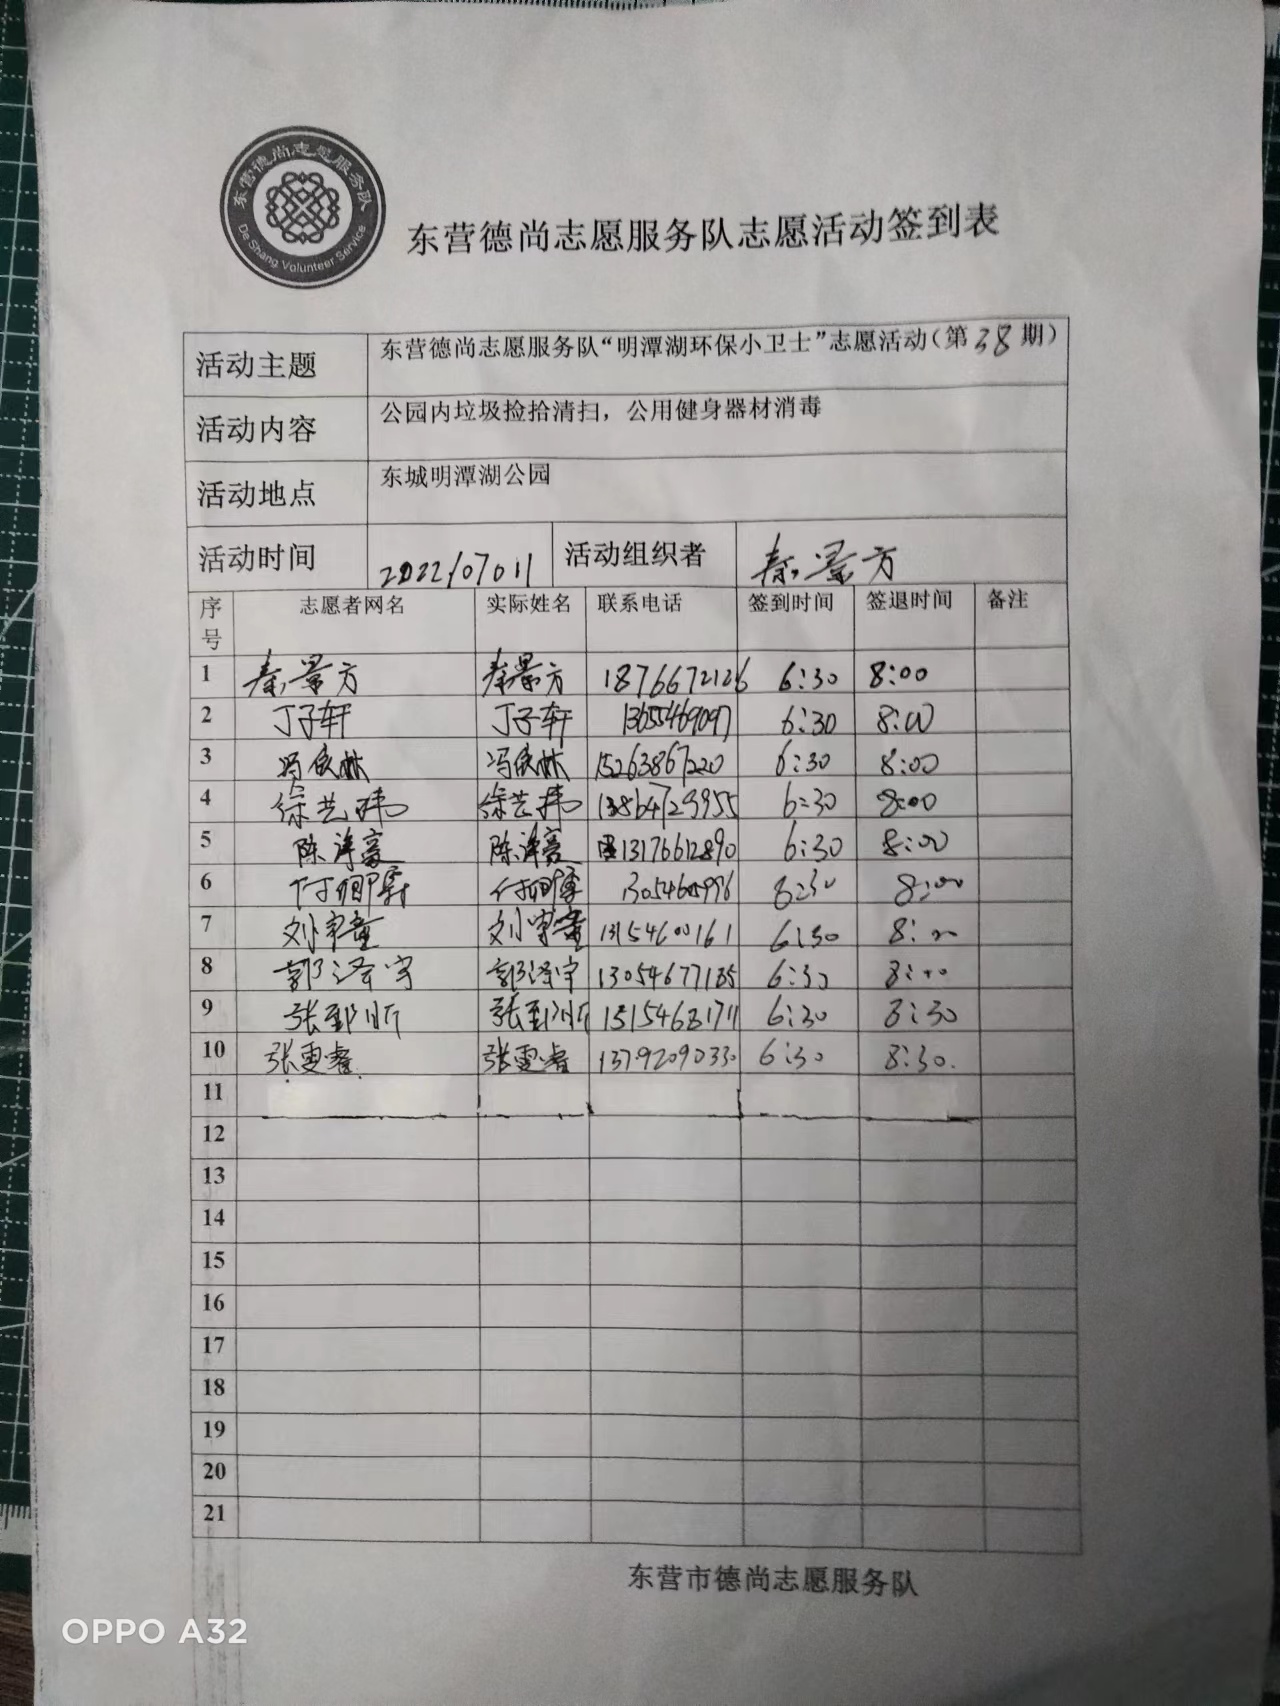 东营德尚志愿服务队
De Shang Volunteer Service
东营德尚志愿服务队志愿活动签到表
活动主题 东营德尚志愿服务队“明潭湖环保小卫士”志愿活动(第38期)
活动内容 公园内垃圾捡拾清扫，公用健身器材消毒
活动地点 东城明潭湖公园
活动时间 2022/07011 活动组织者 秦景方
序号 志愿者网名 实际姓名 联系电话 签到时间 签退时间 备注
1 秦景方 秦景方 1876672126 6:30 8:00
2 丁子轩 丁子轩 13655469097 6:30 8:00
3 15263867220 6:30 8:00
4 徐艺玮 徐艺玮 13864729955 6:30 8:00
5 陈泽豪 陈泽豪 13176612890 6:30 8:00
6 8:00
7 6:30
8 郭泽宇 郭泽宇 13054677185 6:30
9 6:30 8:30
10 张雯睿 张雯睿 13792090330 6:30 8:30.
11
12
13
14
15
16
17
18
19
20
21
东营市德尚志愿服务队
OPPO A32